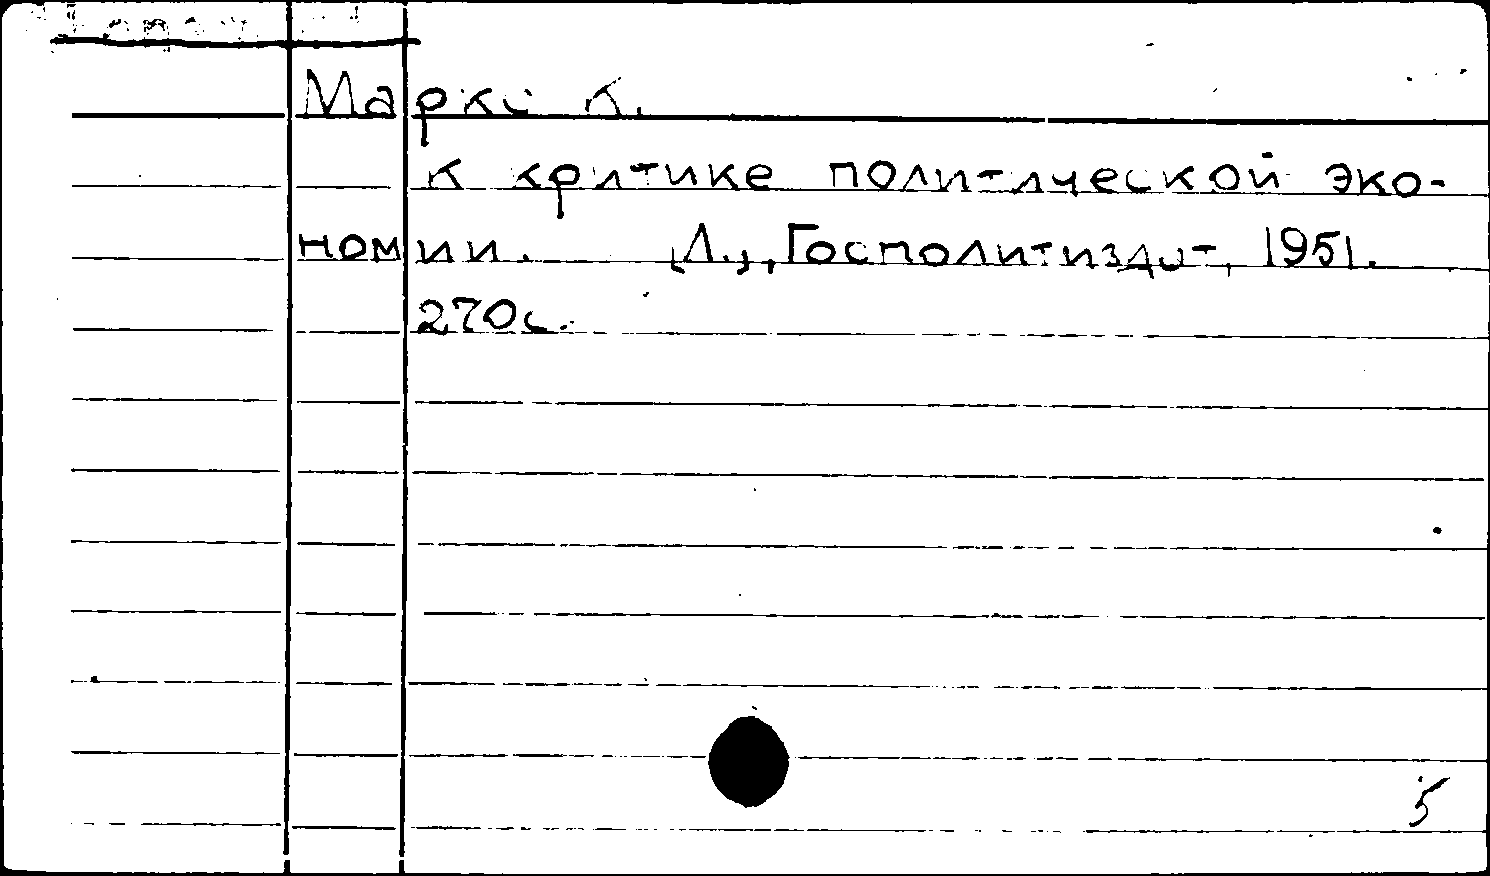 Маркс К.
К критике политической эко-
номии. [Л.], Госполитиздат, 1951.
270с.
5